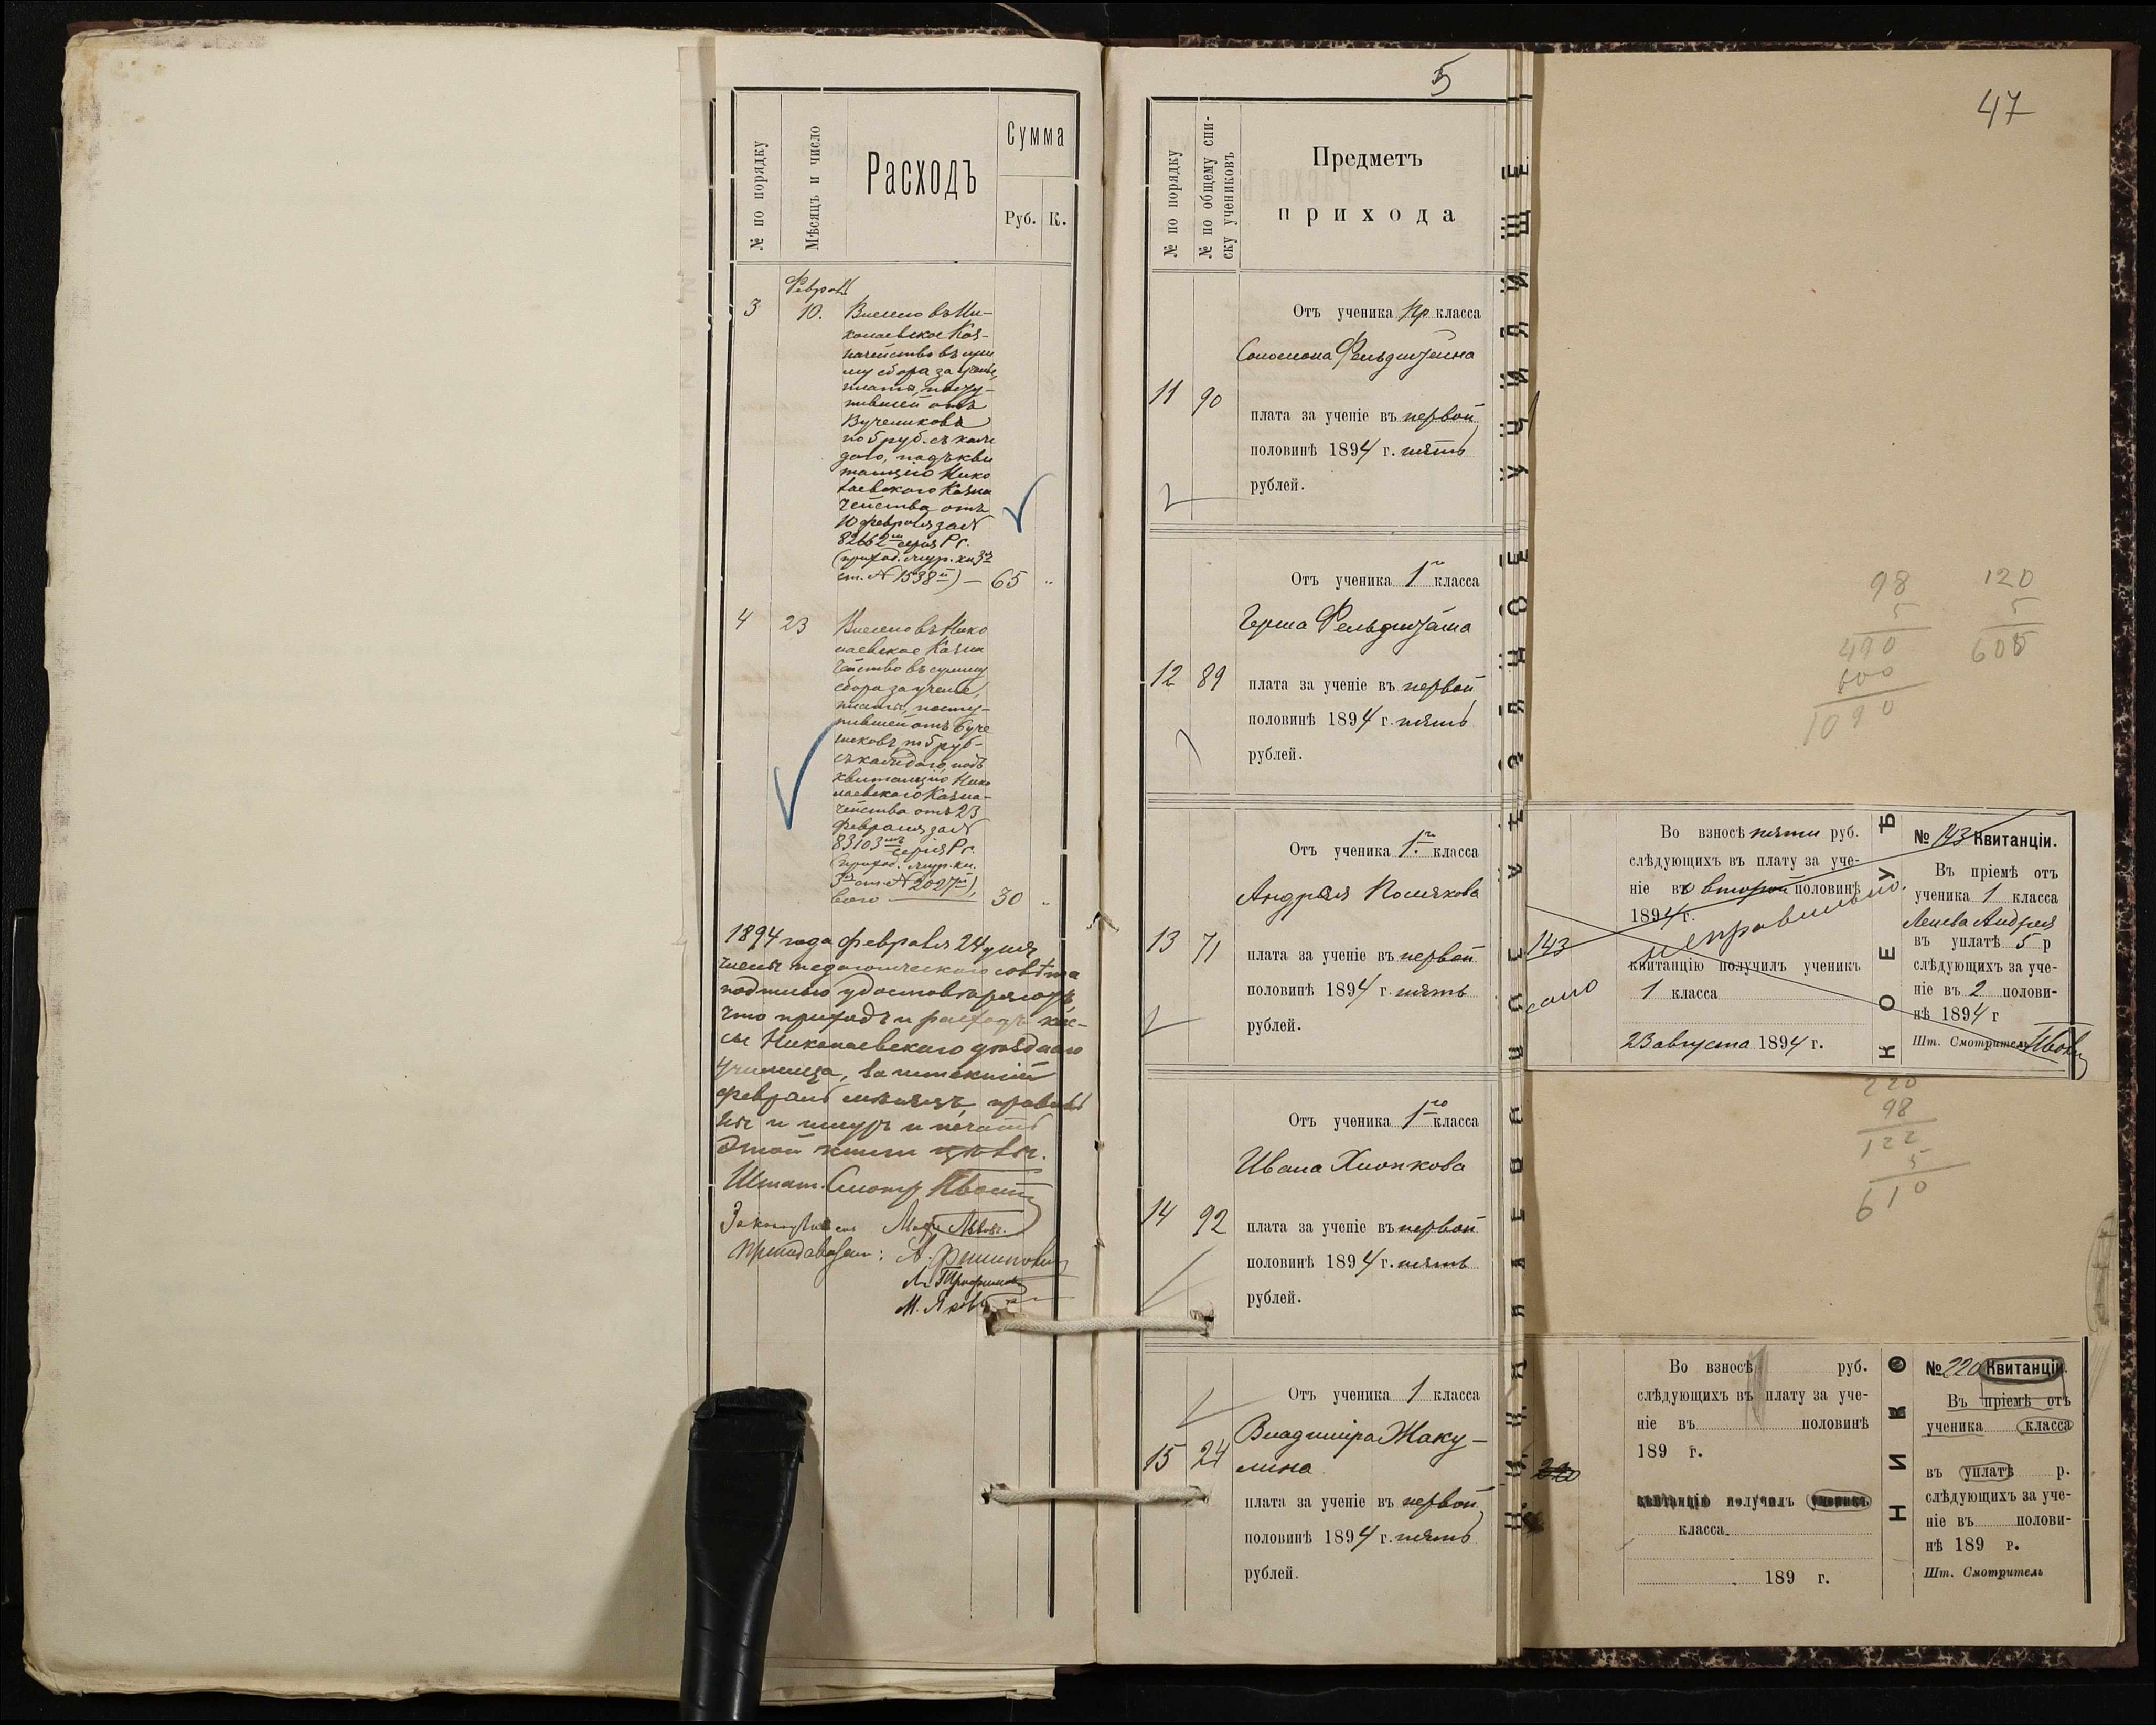 № по порядку
Мѣсяцъ и число
Расходъ
Сумма
Руб. К.
Феврал
3 10. Внесено въ Ни-
колаевское Каз-
начейство въ сум
му сбора за учен.
платы, посту-
пившей отъ
13 учениковъ
по 5 руб. съ каж
даго, подъ кви
танцію Нико
лаевского Казна
чейства отъ
10 февраля за №
82662 серія Рг.
(приход. жур. кн 3
ст. № 1538) — 65 "
4 23 Внесено въ Нико
лаевское Казна
чейство въ сумму
сбора за учение,
платы, посту-
пившей отъ 6 уче
никовъ, по 5 руб-
съ каждаго, подъ
квитанцію Нико
лаевского Казна-
чейства отъ 23
февраля за №
83103 серія Рг.
(приход. жур. кн.
3 ст. № 2027),
всего 30 "
1894 года февраля 24 дня
члены педагогическаго совѣта
подписью удостовѣряютъ,
что приходъ и расходъ кас-
сы Николаевскаго уѣзднаго
училища, за истекшій
февраль мѣсяцъ,
и шнуръ и печать
этой книги цѣлы.
Штат. Смотр.
Законоучитель
Преподаватели:
5
№ по порядку
№ по общему спи-
ску учениковъ
Предметъ
прихода
Отъ ученика пр класса
Соломона Фельдштейна
11 90
плата за ученіе въ первой
половинѣ 1894 г. пять
рублей.
Отъ ученика 1го класса
Герша Фельдштейна
12 89
плата за ученіе въ первой
половинѣ 1894 г. пять
рублей.
Отъ ученика 1го класса
Андрея Полякова
13 71
плата за ученіе въ первой
половинѣ 1894 г. пять
рублей.
Отъ ученика 1го класса
Ивана Хлопкова
14 92
плата за ученіе въ первой
половинѣ 1894 г. пять
рублей.
Отъ ученика 1 класса
Владиміра Жаку-
лина
15 24
плата за ученіе въ первой
половинѣ 1894 г. пять
рублей.
47
98
5
490
600
1090
120
5
600
143
Во взносѣ пяти руб.
слѣдующихъ въ плату за уче-
ніе во второй половинѣ
1894 г.
неправильно.
квитанцію получилъ ученикъ
1 класса
23 августа 1894 г.
КОЕ УѢ
№ 143 Квитанціи.
Въ пріемѣ отъ
ученика 1 класса
Андрея
въ уплатѣ 5 р
слѣдующихъ за уче-
ніе въ 2 полови-
нѣ 1894 г
Шт. Смотритель
220
98
122
5
610
220
Во взносѣ руб.
слѣдующихъ въ плату за уче-
ніе въ половинѣ
189 г.
квитанцію получилъ ученикъ
класса
189 г.
НИКО
№ 220 Квитанціи.
Въ пріемѣ отъ
ученика класса
въ уплатѣ р.
слѣдующихъ за уче-
ніе въ полови-
нѣ 189 г.
Шт. Смотритель